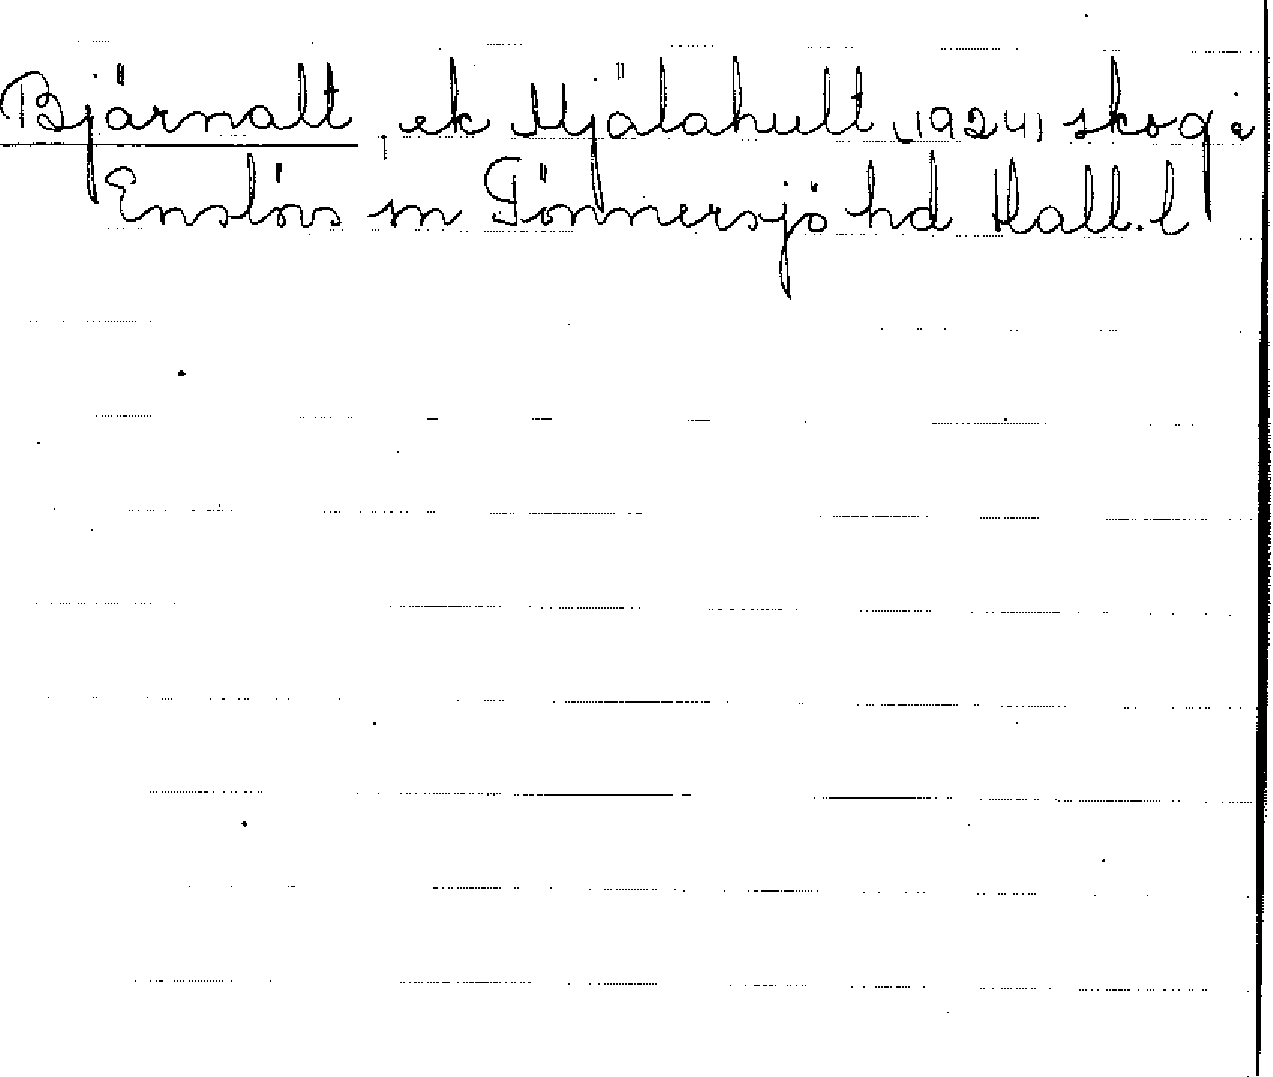 Bjärnalt, ek Mjälahult (1924) skog i
Enslövs sn Tönnersjö hd Hall. l